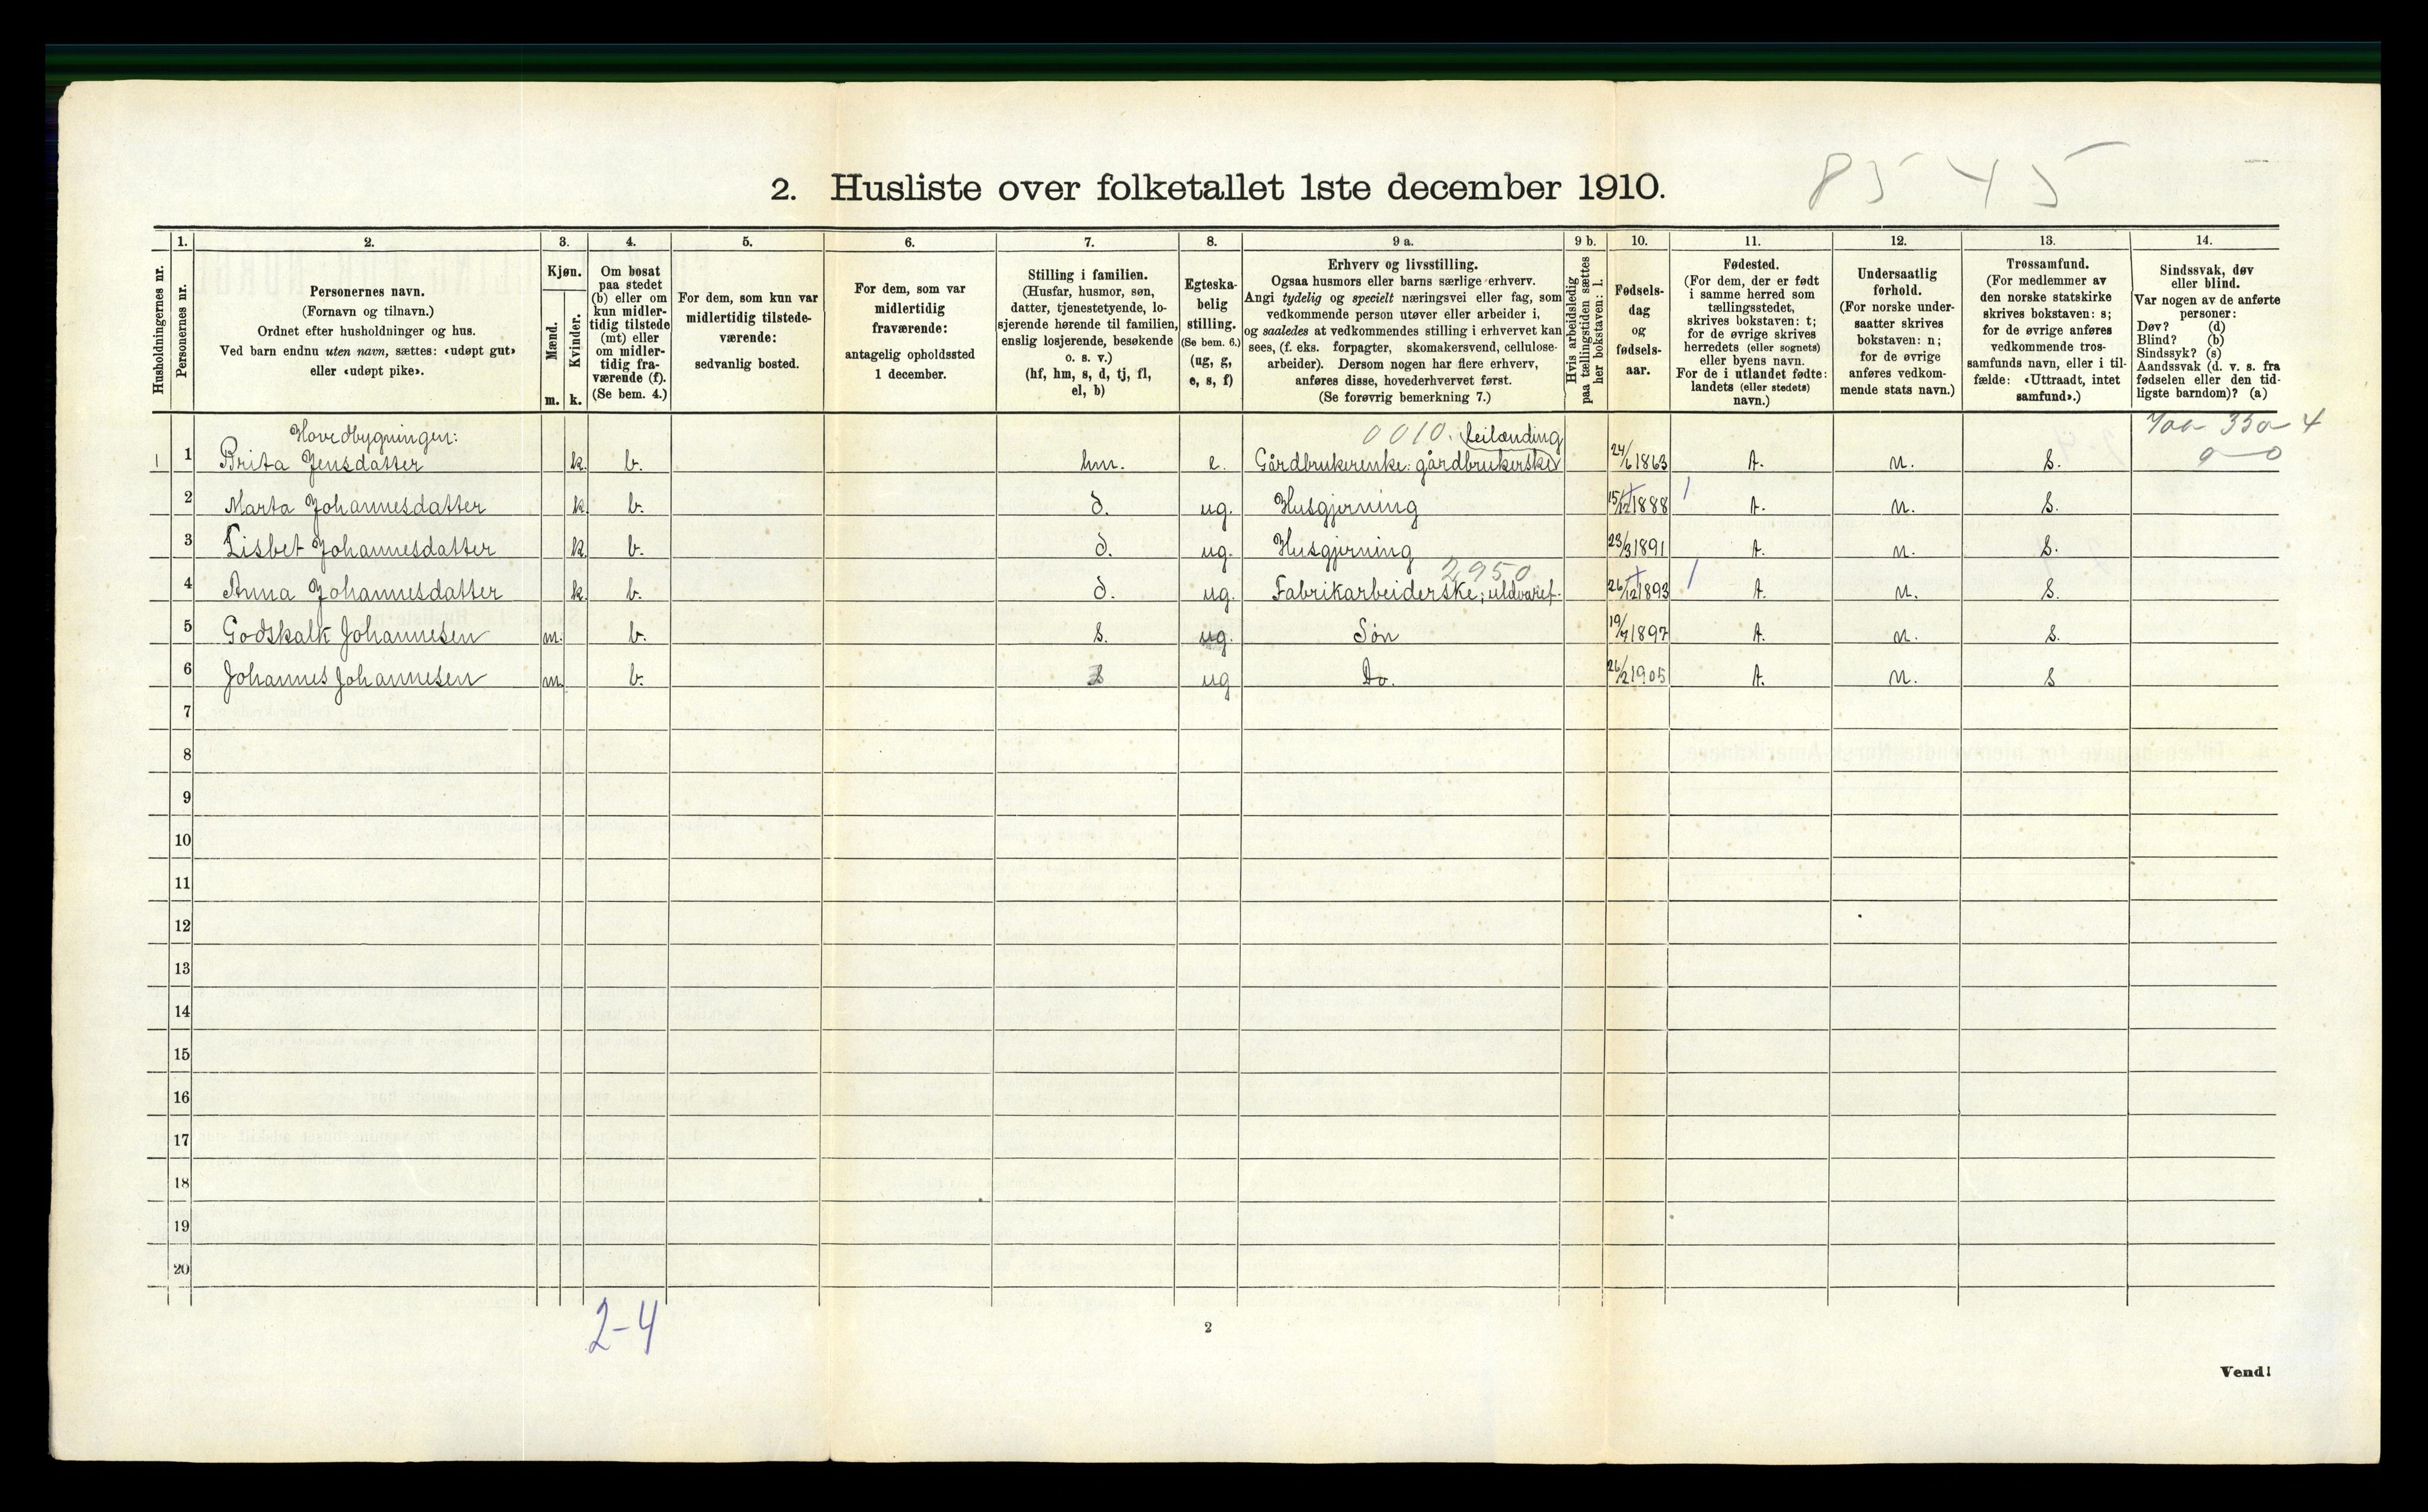 8545
2. Husliste over folketallet 1ste december 1910.
Husholdningernes nr.
1.
Personernes nr.
2.
Personernes navn.
(Fornavn og tilnavn.)
Ordnet efter husholdninger og hus.
Ved barn endnu uten navn, sættes: «udøpt gut»
eller «udøpt pike».
3.
Kjøn.
Mænd.
Kvinder.
m. k.
4.
Om bosat
paa stedet
(b) eller om
kun midler-
tidig tilstede
(mt) eller
om midler-
tidig fra-
værende (f).
(Se bem. 4.)
5.
For dem, som kun var
midlertidig tilstede-
værende:
sedvanlig bosted.
6.
For dem, som var
midlertidig
fraværende:
antagelig opholdssted
1 december.
7.
Stilling i familien.
(Husfar, husmor, søn,
datter, tjenestetyende, lo-
sjerende hørende til familien,
enslig losjerende, besøkende
o. s. v.)
(hf, hm, s, d, tj, fl,
el, b)
8.
Egteska-
belig
stilling.
(Se bem. 6.)
(ug, g,
e, s, f)
9 a.
Erhverv og livsstilling.
Ogsaa husmors eller barns særlige erhverv.
Angi tydelig og specielt næringsvei eller fag, som
vedkommende person utøver eller arbeider i,
og saaledes at vedkommendes stilling i erhvervet kan
sees, (f. eks. forpagter, skomakersvend, cellulose-
arbeider). Dersom nogen har flere erhverv,
anføres disse, hovederhvervet først.
(Se forøvrig bemerkning 7.)
9 b.
Hvis arbeidsledig
paa tællingstiden sættes
her bokstaven: l.
10.
Fødsels-
dag
og
fødsels-
aar.
11.
Fødested.
(For dem, der er født
i samme herred som
tællingsstedet,
skrives bokstaven: t;
for de øvrige skrives
herredets (eller sognets)
eller byens navn.
For de i utlandet fødte:
landets (eller stedets)
navn.)
12.
Undersaatlig
forhold.
(For norske under-
saatter skrives
bokstaven: n;
for de øvrige
anføres vedkom-
mende stats navn.)
13.
Trossamfund.
(For medlemmer av
den norske statskirke
skrives bokstaven: s;
for de øvrige anføres
vedkommende tros-
samfunds navn, eller i til-
fælde: «Uttraadt, intet
samfund».)
14.
Sindssvak, døv
eller blind.
Var nogen av de anførte
personer:
Døv? (d)
Blind? (b)
Sindssyk? (s)
Aandssvak (d. v. s. fra
fødselen eller den tid-
ligste barndom)? (a)
Hovedbygningen:
0010. leilænding
1 1 Brita Jensdatter k. b. hm. e. Gårdbrukerenke: gårdbrukerske 24/6 1863 t. n. s.
2 Marta Johannesdatter k. b. d. ug. Husgjerning 15/12 1888 t. n. s.
3 Lisbet Johannesdatter k. b. d. ug. Husgjerning 23/3 1891 t. n. s.
2950
4 Anna Johannesdatter k. b. d. ug. Fabrikarbeiderske; uldvaref. 26/12 1893 t. n. s.
5 Godskalk Johannesen m. b. s. ug. Søn 19/7 1897 t. n. s.
6 Johannes Johannesen m. b. s ug Do. 26/2 1905 t. n. s
7
8
9
10
11
12
13
14
15
16
17
18
19
20
2-4
2
Vend!